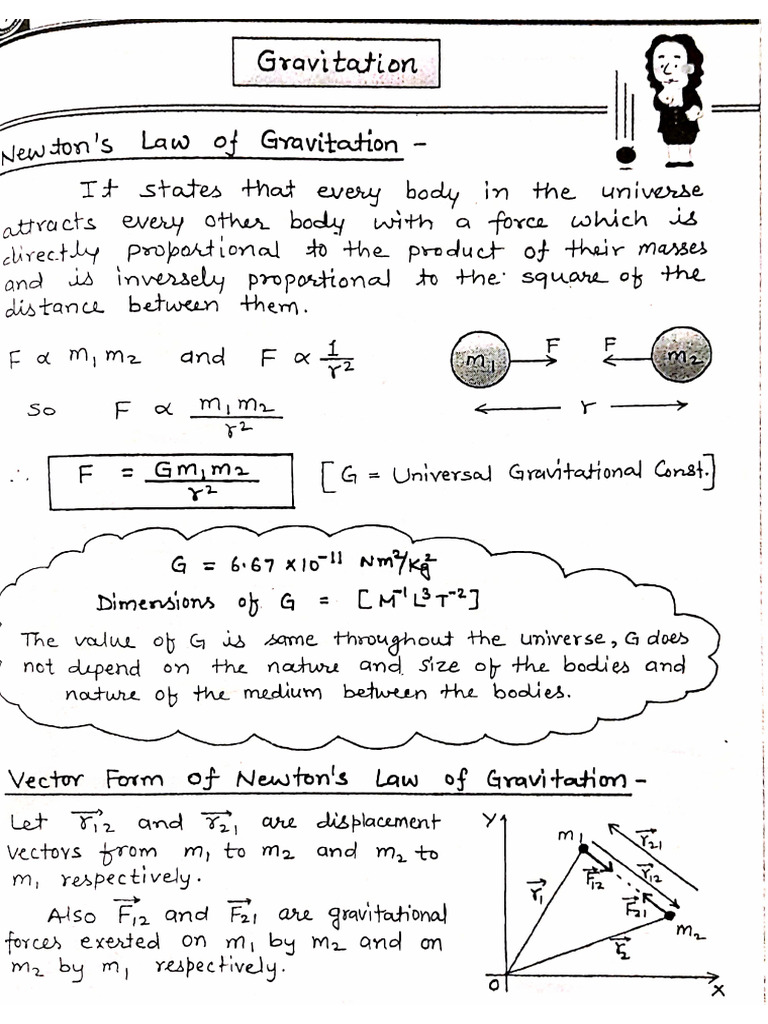 Gravitation
Newton's Law of Gravitation -
It states that every body in the universe
attracts every other body with a force which is
directly proportional to the product of their masses
and is inversely proportional to the square of the
distance between them.
F ∝ m₁m₂ and F ∝ 1/r²
m₁ F F m₂
so F ∝ m₁m₂/r²
r
∴ F = Gm₁m₂/r² [G = Universal Gravitational Const.]
G = 6.67 × 10⁻¹¹ Nm²/Kg²
Dimensions of G = [M⁻¹L³T⁻²]
The value of G is same throughout the universe, G does
not depend on the nature and size of the bodies and
nature of the medium between the bodies.
Vector Form of Newton's Law of Gravitation -
Let r⃗₁₂ and r⃗₂₁ are displacement
vectors from m₁ to m₂ and m₂ to
m₁ respectively.
Also F⃗₁₂ and F⃗₂₁ are gravitational
forces exerted on m₁ by m₂ and on
m₂ by m₁ respectively.
Y
m₁
r⃗₂₁
r⃗₁₂
F⃗₁₂
r⃗₁
F⃗₂₁
m₂
r⃗₂
O
X